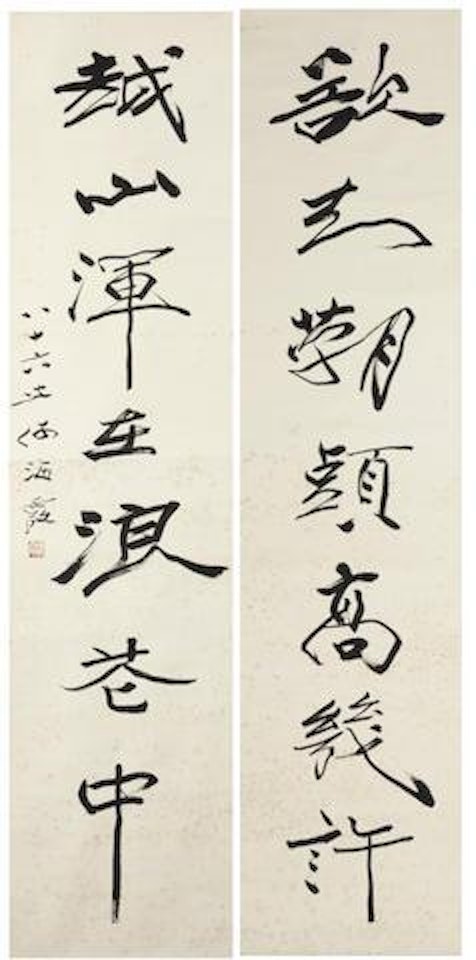 欲知潮頭高幾許
越山渾在浪花中
八十六 何海霞